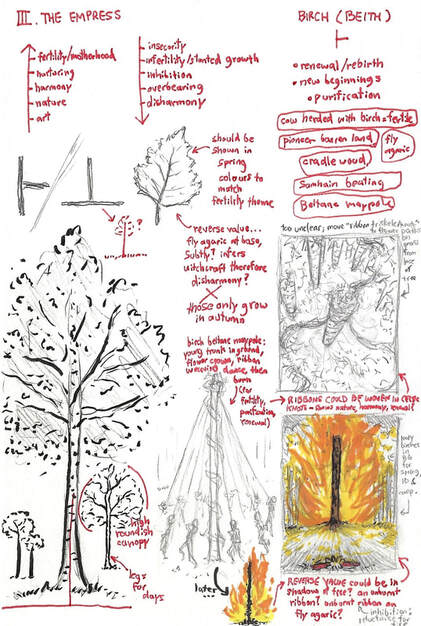 III. THE EMPRESS
fertility/motherhood
nurturing
harmony
nature
art
insecurity
infertility/stunted growth
inhibition
overbearing
disharmony
BIRCH (BEITH)
• renewal/rebirth
• new beginnings
• purification
cow herded with birch = fertile
pioneer barren land
fly
agaric
cradle wood
Samhain beating
Beltane maypole
should be
shown in
spring
colours to
match
fertility theme
?
reverse value...
fly agaric at base,
subtly? infers
witchcraft therefore
disharmony?
those only grow
in autumn
too unclear; move "ribbon
birch beltane maypole:
young trunk in ground,
flower crowns, ribbon
dance, then
burn
(for
fertility,
purification,
renewal)
RIBBONS COULD BE WOVEN IN CELTIC
KNOTS = nature, harmony, renewal?
high
roundish
canopy
legs
for
days
later
birches
in
BG
for
spring
comp.
REVERSE VALUE could be in
shadows of tree? an unburnt
ribbon? unburnt ribbon on
fly agaric?
inhibition;